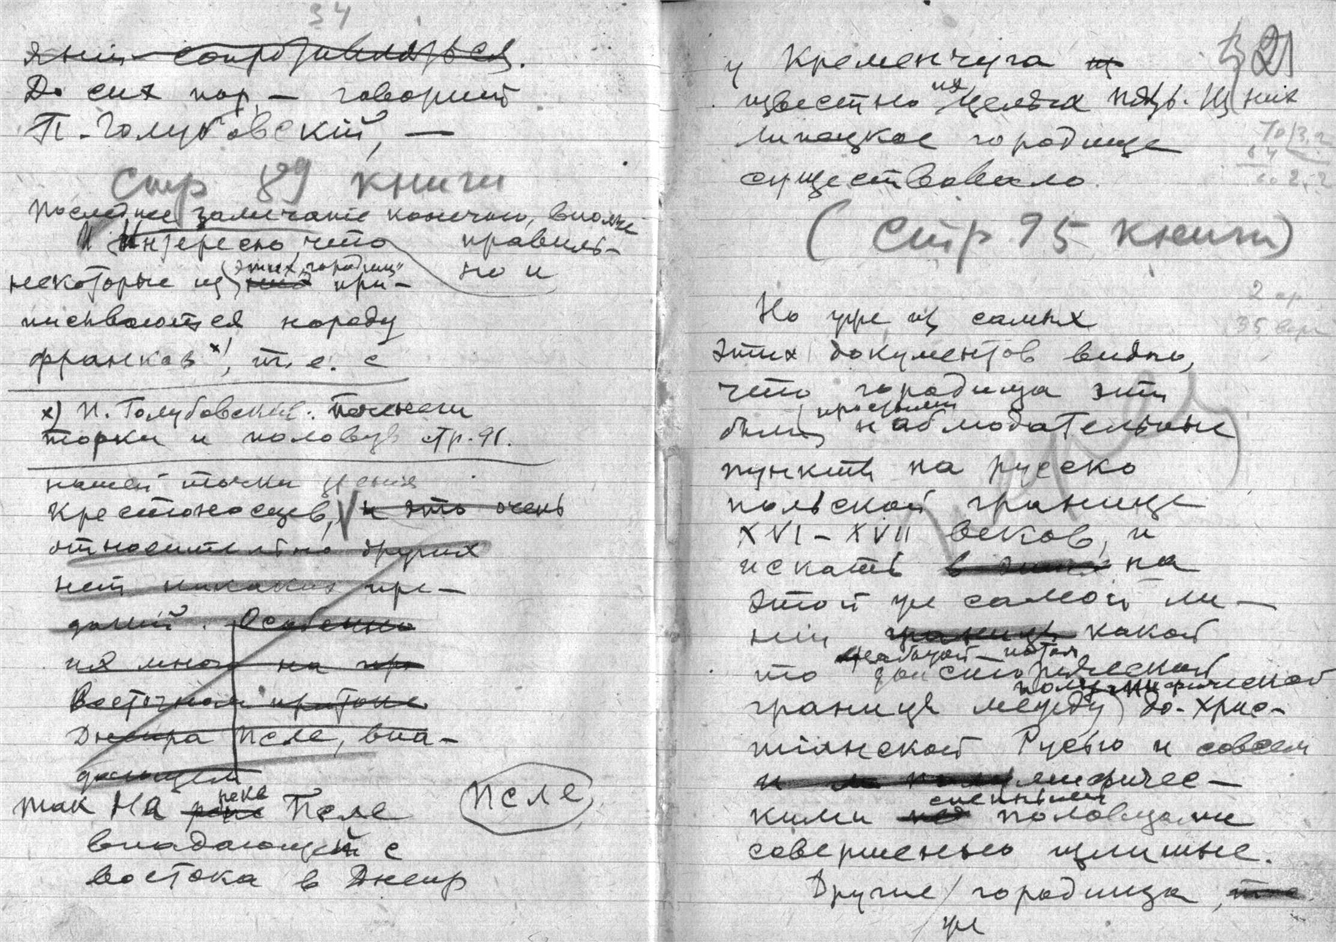 34
До сих пор, — говорит
П. Голубовский, —
Стр 89 книги
Последнее замечание конечно, вполне
Интересно что правиль-
некоторые из этих „городищ“ но и
при-
писываются народу
франков х), т. е. с
х) П. Голубовский. Печенеги
торки и половцы стр. 91.
нашей точки зрения
Крестоносцев, и это очень
относительно других
нет никаких пре-
даний. Особенно
их много на
Восточном притоке
Днепра Псле, впа-
дающем
так на реке Псле
Псле
впадающей с
востока в Днепр
21
у Кременчуга
известно их целых пять. Из них
липецкое городище
существовало.
(Стр. 95 книги)
2 ар
35 ар
Но уже из самых
этих документов видно,
что городища эти
были простыми наблюдательные
пункты на русско
польской границе
XVI – XVII веков, и
искать в этих на
этой же самой ли-
нии границы какой
то доисторической
границы между полу-мифической до-хрис-
тианской Русью и совсем
мифичес-
кими степными половцами
совершенно излишне.
Другие же городища,